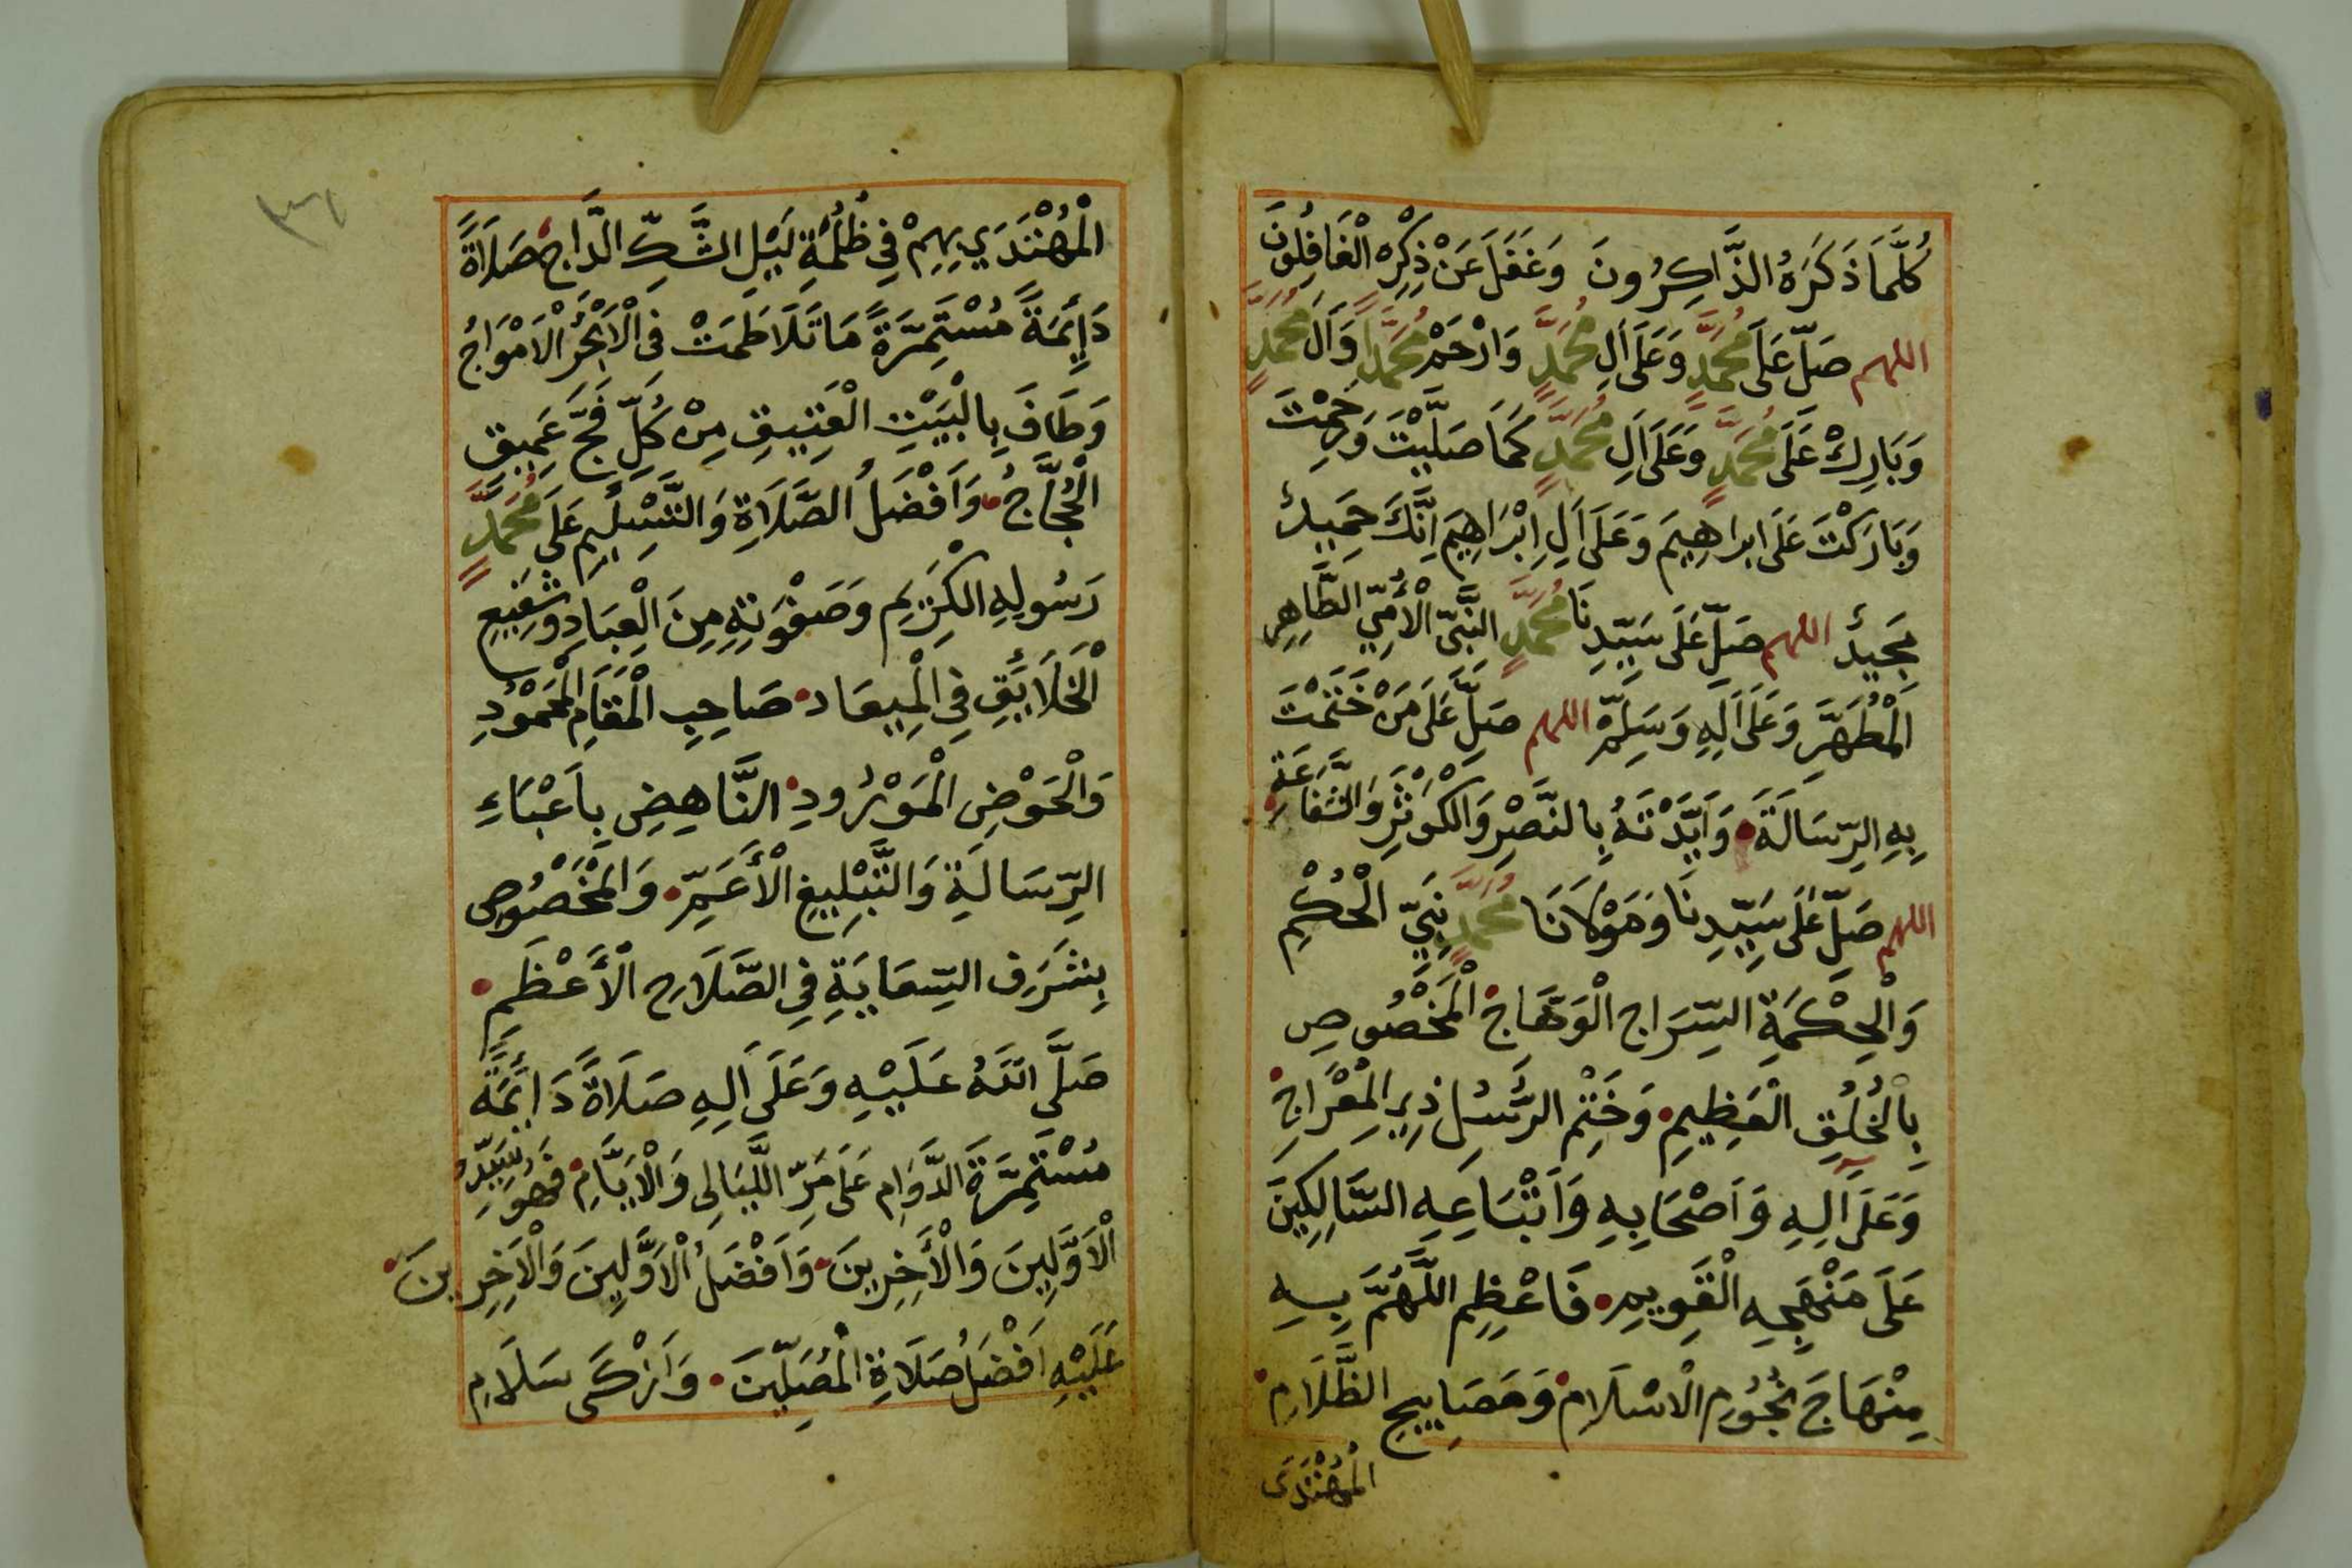 كُلَّمَا ذَكَرَهُ الذَّاكِرُونَ وَغَفَلَ عَنْ ذِكْرِهِ الْغَافِلُونَ
اللهم صَلِّ عَلَى مُحَمَّدٍ وَعَلَى اَلِ مُحَمَّدٍ وَارْحَمْ مُحَمَّداً وَاَلَ مُحَمَّدٍ
وَبَارِكْ عَلَى مُحَمَّدٍ وَعَلَى اَلِ مُحَمَّدٍ كَمَا صَلَّيْتَ وَرَحِمْتَ
وَبَارَكْتَ عَلَى ابراهِيمَ وَعَلَى اَلِ اِبْرَاهِيمَ اِنَّكَ حَمِيدٌ
مَجِيدٌ اللهم صَلِّ عَلَى سَيِّدِنَا مُحَمَّدٍ النَّبِيِّ الْأُمِّيِّ الطَّاهِرِ
الْمُطَهَّرِ وَعَلَى اَلِهِ وَسَلِّمْ اللهم صَلِّ عَلَى مَنْ خَتَمْتَ
بِهِ الرِّسَالَةَ وَاَيَّدْتَهُ بِالنَّصْرِ وَالْكَوْثَرِ وَالشَّفَاعَةِ
اللهم صَلِّ عَلَى سَيِّدِنَا وَمَوْلَانَا مُحَمَّدٍ نَبِيِّ الْحُكْمِ
وَالْحِكْمَةِ السِّرَاجِ الْوَهَّاجِ الْمَخْصُوصِ
بِالْخُلُقِ الْعَظِيمِ وَخَتْمِ الرُّسُلِ ذِي الْمِعْرَاجِ
وَعَلَى اَلِهِ وَاَصْحَابِهِ وَاَتْبَاعِهِ السَّالِكِينَ
عَلَى مَنْهَجِهِ الْقَوِيمِ فَاَعْظِمِ اللَّهُمَّ بِهِ
مِنْهَاجَ نُجُومِ الْاسْلَامِ وَمَصَابِيحِ الظَّلَامِ
الْمُهْتَدَى
٣٦
الْمُهْتَدَي بِهِمْ فِي ظُلْمَةِ لَيْلِ الشَّكِّ الدَّاجِ صَلَاةً
دَائِمَةً مُسْتَمِرَّةً مَا تَلَاطَمَتْ فِي الْاَبْحُرِ الْاَمْوَاجُ
وَطَافَ بِالْبَيْتِ الْعَتِيقِ مِنْ كُلِّ فَجٍّ عَمِيقٍ
الْحُجَّاجُ وَاَفْضَلُ الصَّلَاةِ وَالتَّسْلِيمِ عَلَى مُحَمَّدٍ
رَسُولِهِ الْكَرِيمِ وَصَفْوَتِهِ مِنَ الْعِبَادِ وَشَفِيعِ
الْخَلَائِقِ فِي الْمِيعَادِ صَاحِبِ الْمَقَامِ الْمَحْمُودِ
وَالْحَوْضِ الْمَوْرُودِ النَّاهِضِ بِاَعْبَاءِ
الرِّسَالَةِ وَالتَّبْلِيغِ الْأَعَمِّ وَالْمَخْصُوصِ
بِشَرَفِ السِّعَايَةِ فِي الصَّلَاحِ الْأَعْظَمِ
صَلَّى اللَّهُ عَلَيْهِ وَعَلَى اَلِهِ صَلَاةً دَائِمَةً
مُسْتَمِرَّةَ الدَّوَامِ عَلَى مَرِّ اللَّيَالِي وَالْاَيَّامِ فَهُوَ سَيِّدُ
الْاَوَّلِينَ وَالْأَخِرِينَ وَاَفْضَلُ الْاَوَّلِينَ وَالْاَخِرِينَ
عَلَيْهِ اَفْضَلُ صَلَاةِ الْمُصَلِّينَ وَاَزْكَى سَلَامِ